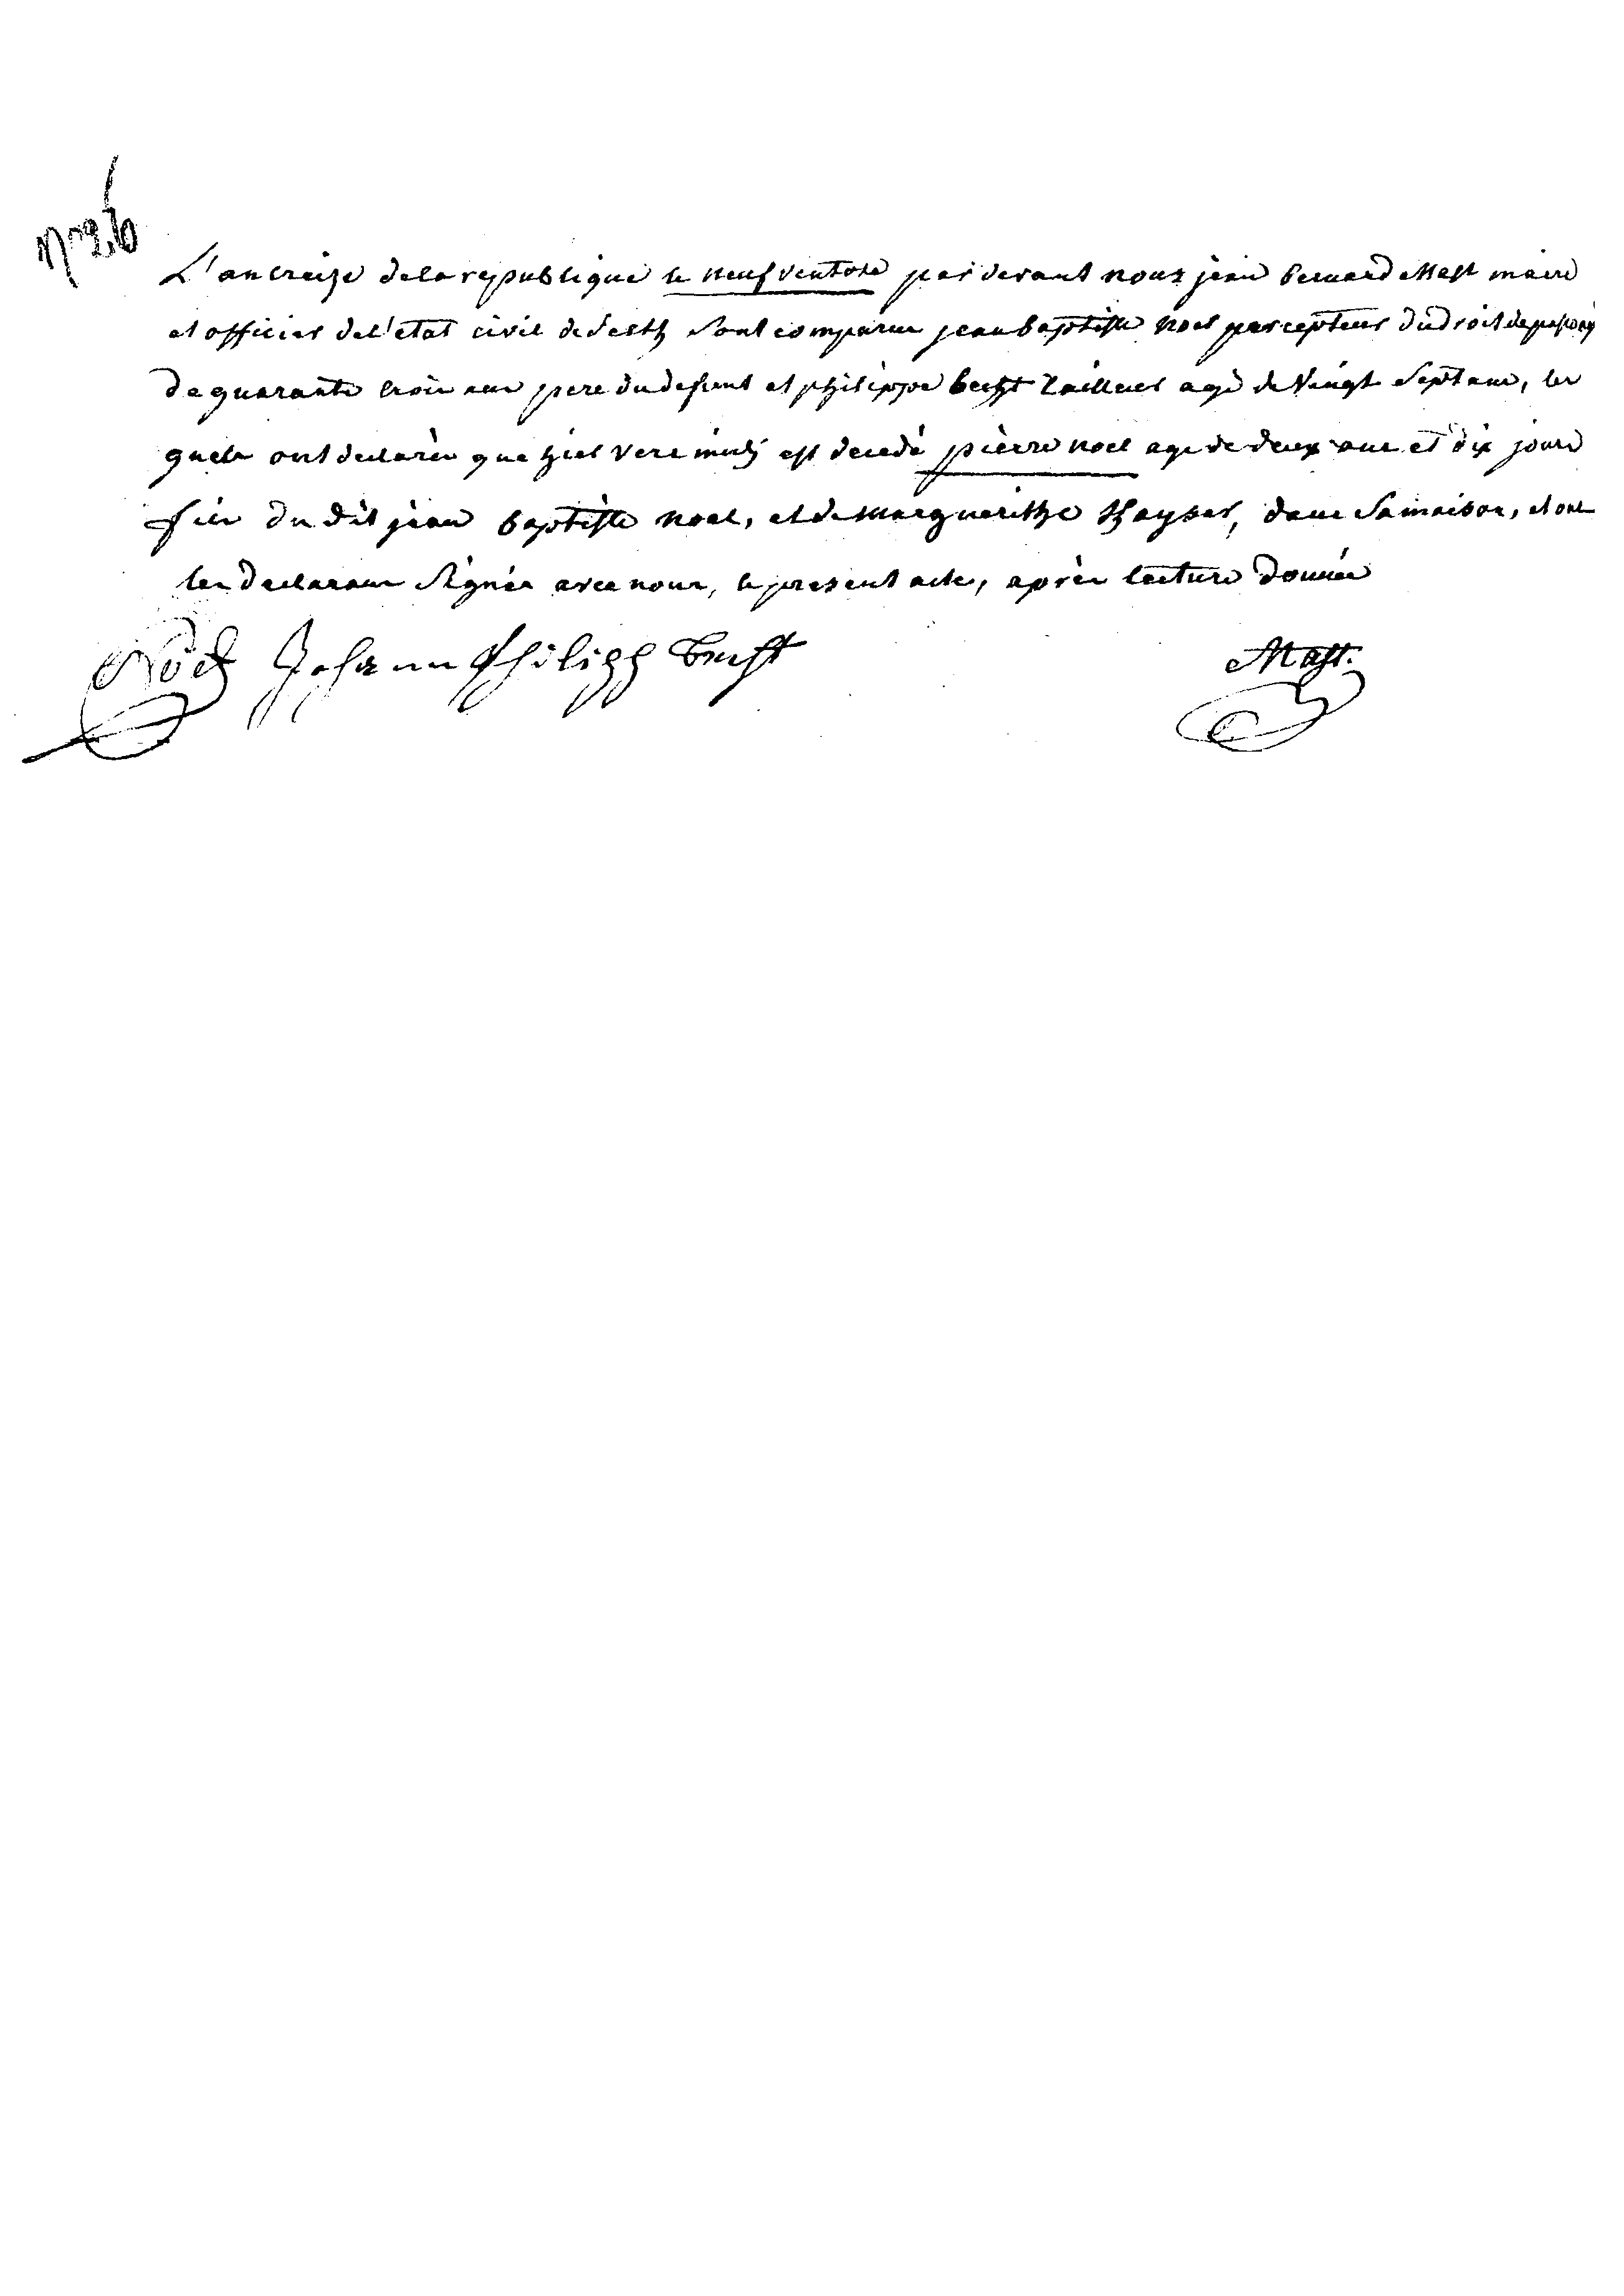 N° 26
L'an treize de la republique le neuf ventose par devant nous jean bernard Mast maire
et officier de l'etat civil de sont comparus jean baptiste noel percepteur du droit de passage
de quarante trois ans pere du defunt et philippe becht tailleur agé de vingt sept ans, les
quels ont declarés que hier vers midy est decedé pièrre noel agé de deux ans et dix jours
fils du dit jean baptiste noel, et de marguerithe Kayser, dans sa maison, et ont
les declarans signés avec nous, le present acte, après lecture donnée
Noël Johann Philipp Becht Mast.